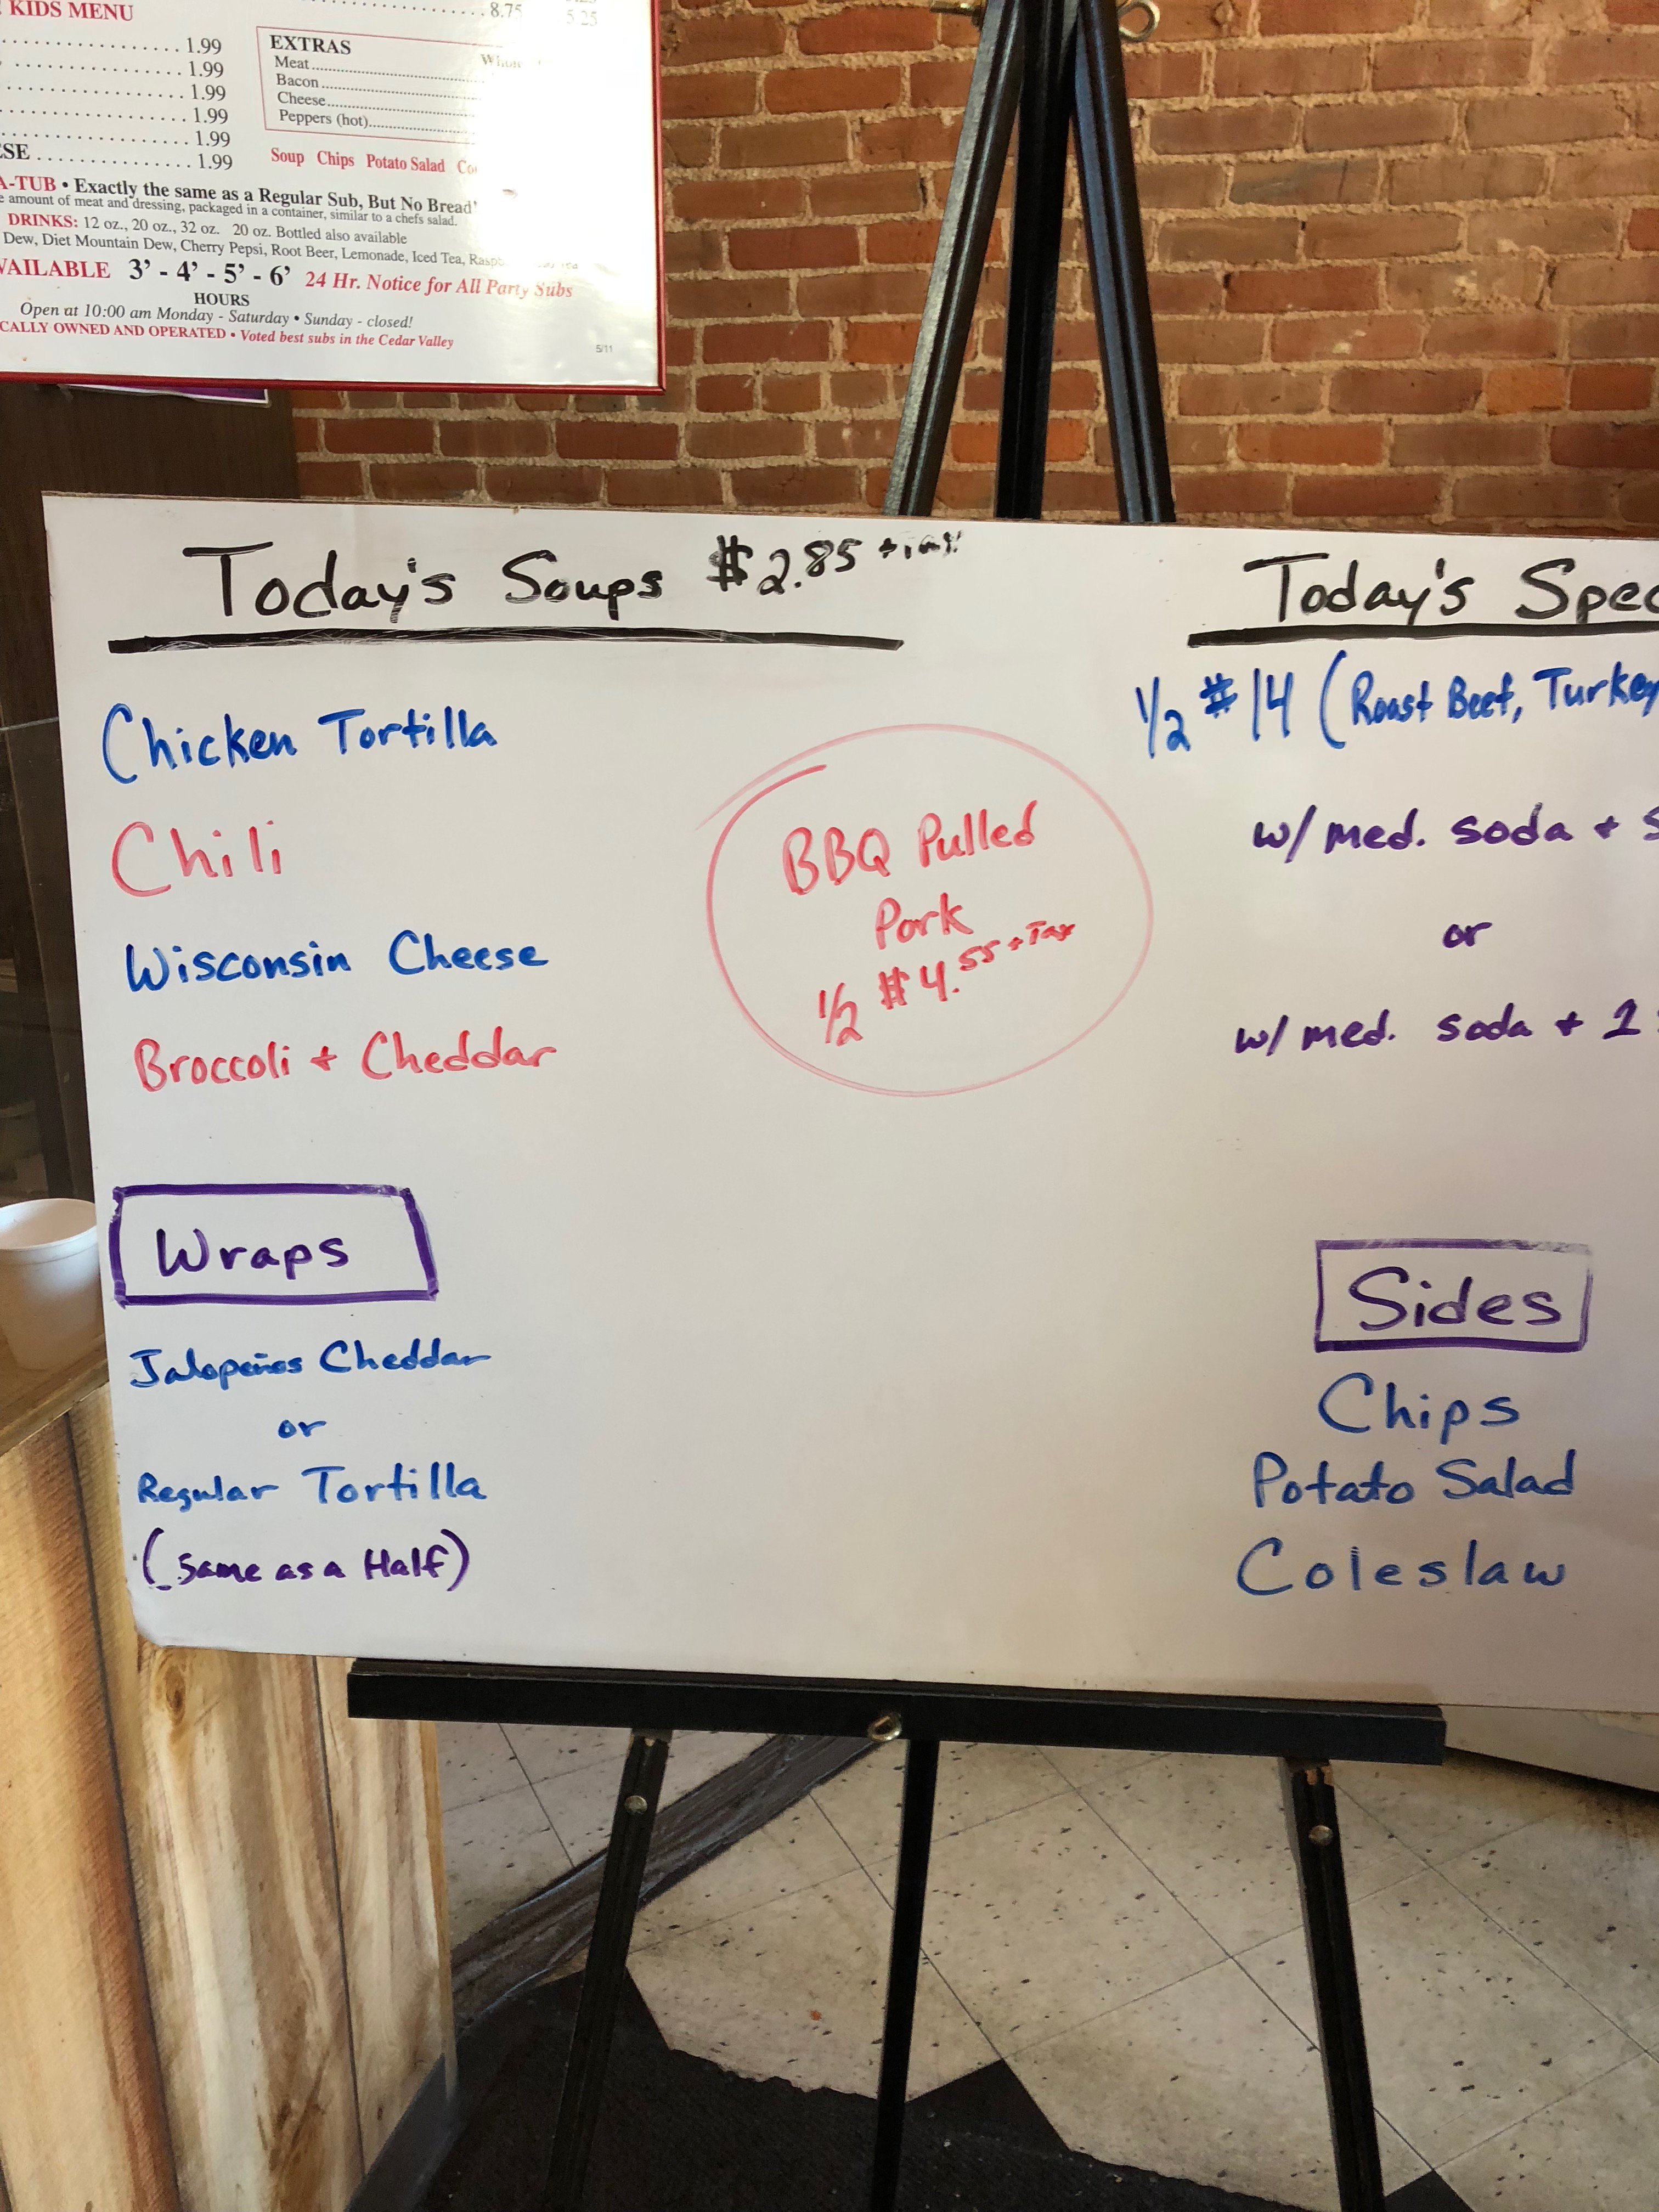 KIDS MENU
8.75
5.25
1.99
1.99
1.99
1.99
1.99
1.99
EXTRAS
Meat
Bacon
Cheese
Peppers (hot)
Soup Chips Potato Salad
A-TUB • Exactly the same as a Regular Sub, But No Bread"
amount of meat and dressing, packaged in a container, similar to a chefs salad.
DRINKS: 12 oz., 20 oz., 32 oz. 20 oz. Bottled also available
Dew, Diet Mountain Dew, Cherry Pepsi, Root Beer, Lemonade, Iced Tea,
VAILABLE 3' - 4' - 5' - 6' 24 Hr. Notice for All Party Subs
HOURS
Open at 10:00 am Monday - Saturday • Sunday - closed!
CALLY OWNED AND OPERATED • Voted best subs in the Cedar Valley
5/11
Today's Soups $2.85 + Tax
Chicken Tortilla
Chili
Wisconsin Cheese
Broccoli + Cheddar
BBQ Pulled
Pork
1/2 $4.55 + Tax
Today's Spec
1/2 #14 (Roast Beef, Turkey
w/ med. soda + S
or
w/ med. soda + 2
Wraps
Jalapeños Cheddar
or
Regular Tortilla
(same as a Half)
Sides
Chips
Potato Salad
Coleslaw